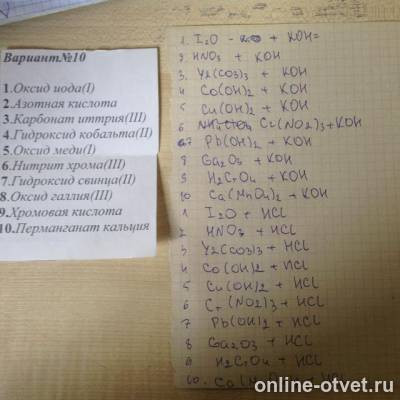 Вариант№10
1.Оксид иода(I)
2.Азотная кислота
3.Карбонат иттрия(III)
4.Гидроксид кобальта(II)
5.Оксид меди(I)
6.Нитрит хрома(III)
7.Гидроксид свинца(II)
8.Оксид галлия(III)
9.Хромовая кислота
10.Перманганат кальция
1. I2O - + KOH=
2. HNO3 + KOH
3. Y2(CO3)3 + KOH
4 Co(OH)2 + KOH
5 Cu(OH)2 + KOH
6 Cr(NO2)3+KOH
7 Pb(OH)2 + KOH
8 Ga2O3 + KOH
9 H2CrO4 + KOH
10 Ca(MnO4)2 + KOH
1 I2O + HCL
2 HNO3 + HCL
3 Y2(CO3)3 + HCL
4 Co(OH)2 + HCL
5 Cu(OH)2 + HCL
6 Cr(NO2)3 + HCL
7 Pb(OH)2 + HCL
8 Ga2O3 + HCL
9 H2CrO4 + HCL
10. HCL
online-otvet.ru